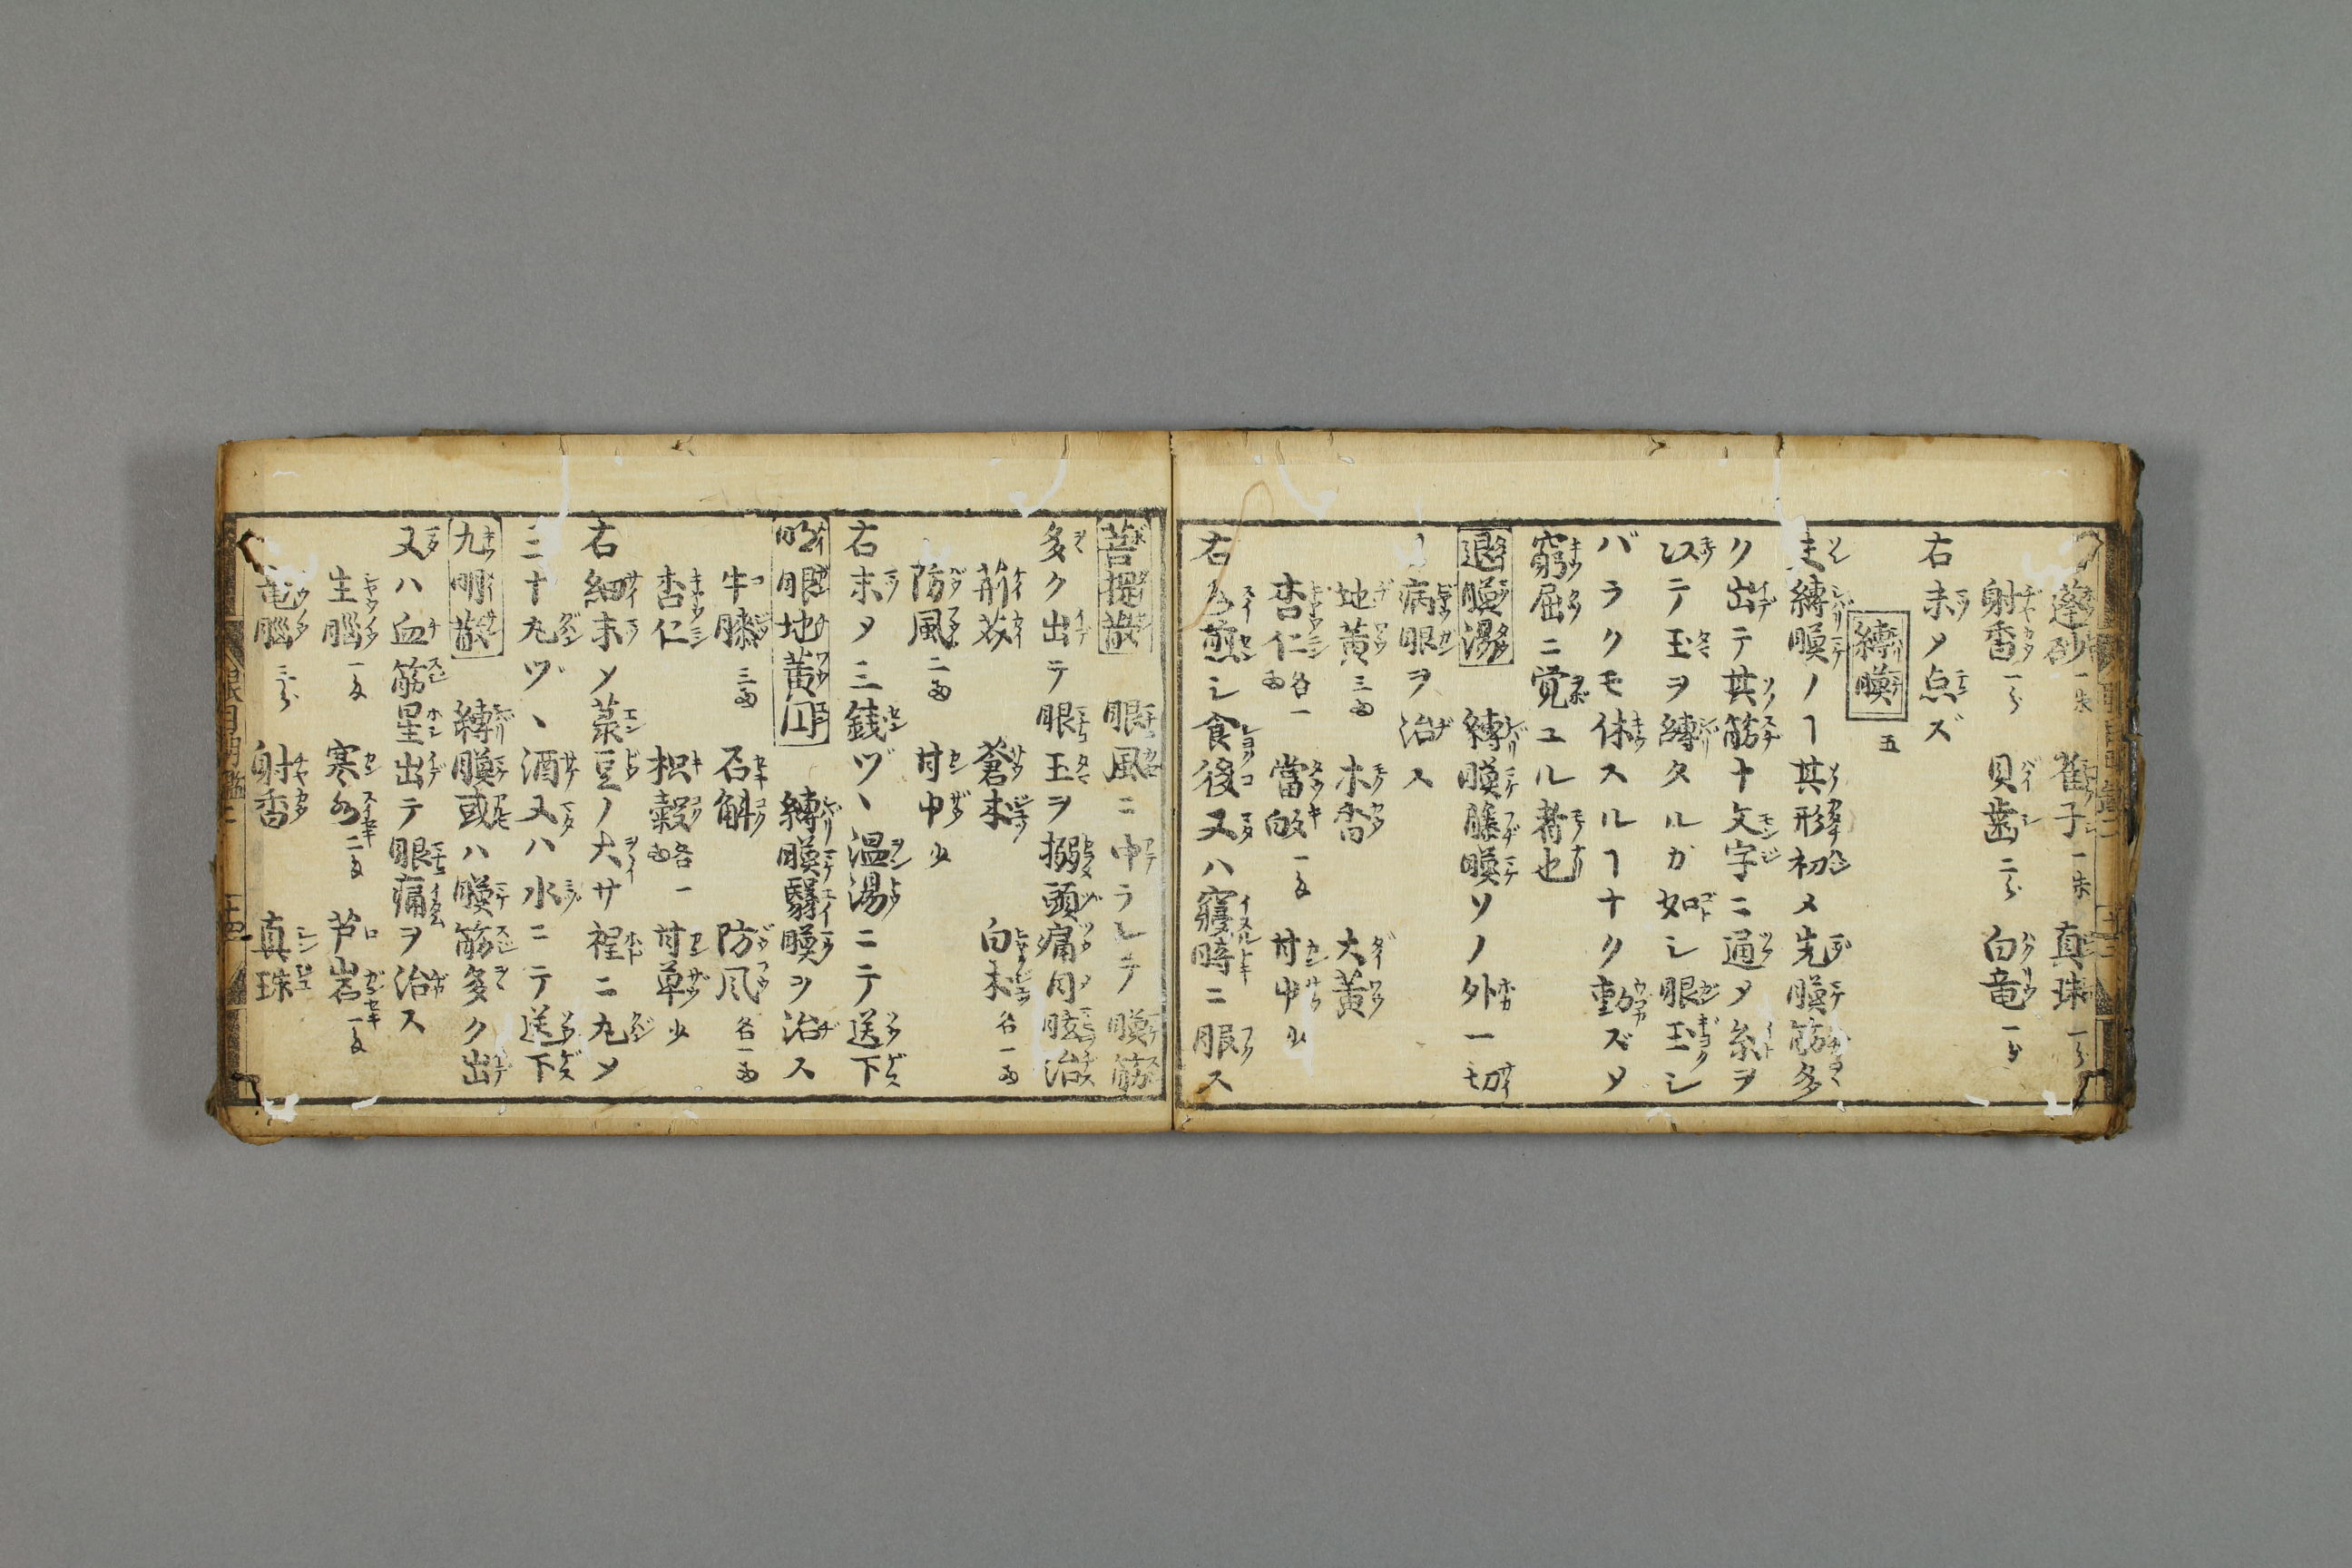 蓬砂一朱 雀子一朱 真珠一分
射香一分 貝歯二分 白竜一分
右末〆点ズ
縛瞙 五
夫縛瞙ノヿ其形初メ先瞙筋多
ク出テ其筋十文字ニ通〆糸ヲ
以テ玉ヲ縛タルガ如シ眼玉シ
バラクモ休スルヿナク動ズ〆
窮屈ニ覚ユル者也
退瞙湯 縛瞙藤瞙ソノ外一切
病眼ヲ治ス
地黄三両 木香 大黄
杏仁各一両 當皈一匁 甘中少
右 煎シ食後又ハ寝時ニ服ス
菩提散 眼風ニ中ラレテ瞙筋
多ク出テ眼玉ヲ搦頭痛目眩治
荊芥 蒼朮 白朮各一両
防風二両 甘中少
右末〆三銭ヅヽ温湯ニテ送下
明眼地黄円 縛瞙翳瞙ヲ治ス
牛膝三両 石斛 防風各一両
杏仁 枳殻各一両 甘草少
右細末〆菉豆ノ大サ程ニ丸〆
二十丸ヅヽ酒又ハ水ニテ送下
九明散 縛瞙或ハ瞙筋多ク出
又ハ血筋星出テ眼痛ヲ治ス
生脳一匁 寒水二匁 芦岩一匁
竜脳三分 射香 真珠
眼目明鑑二 十四